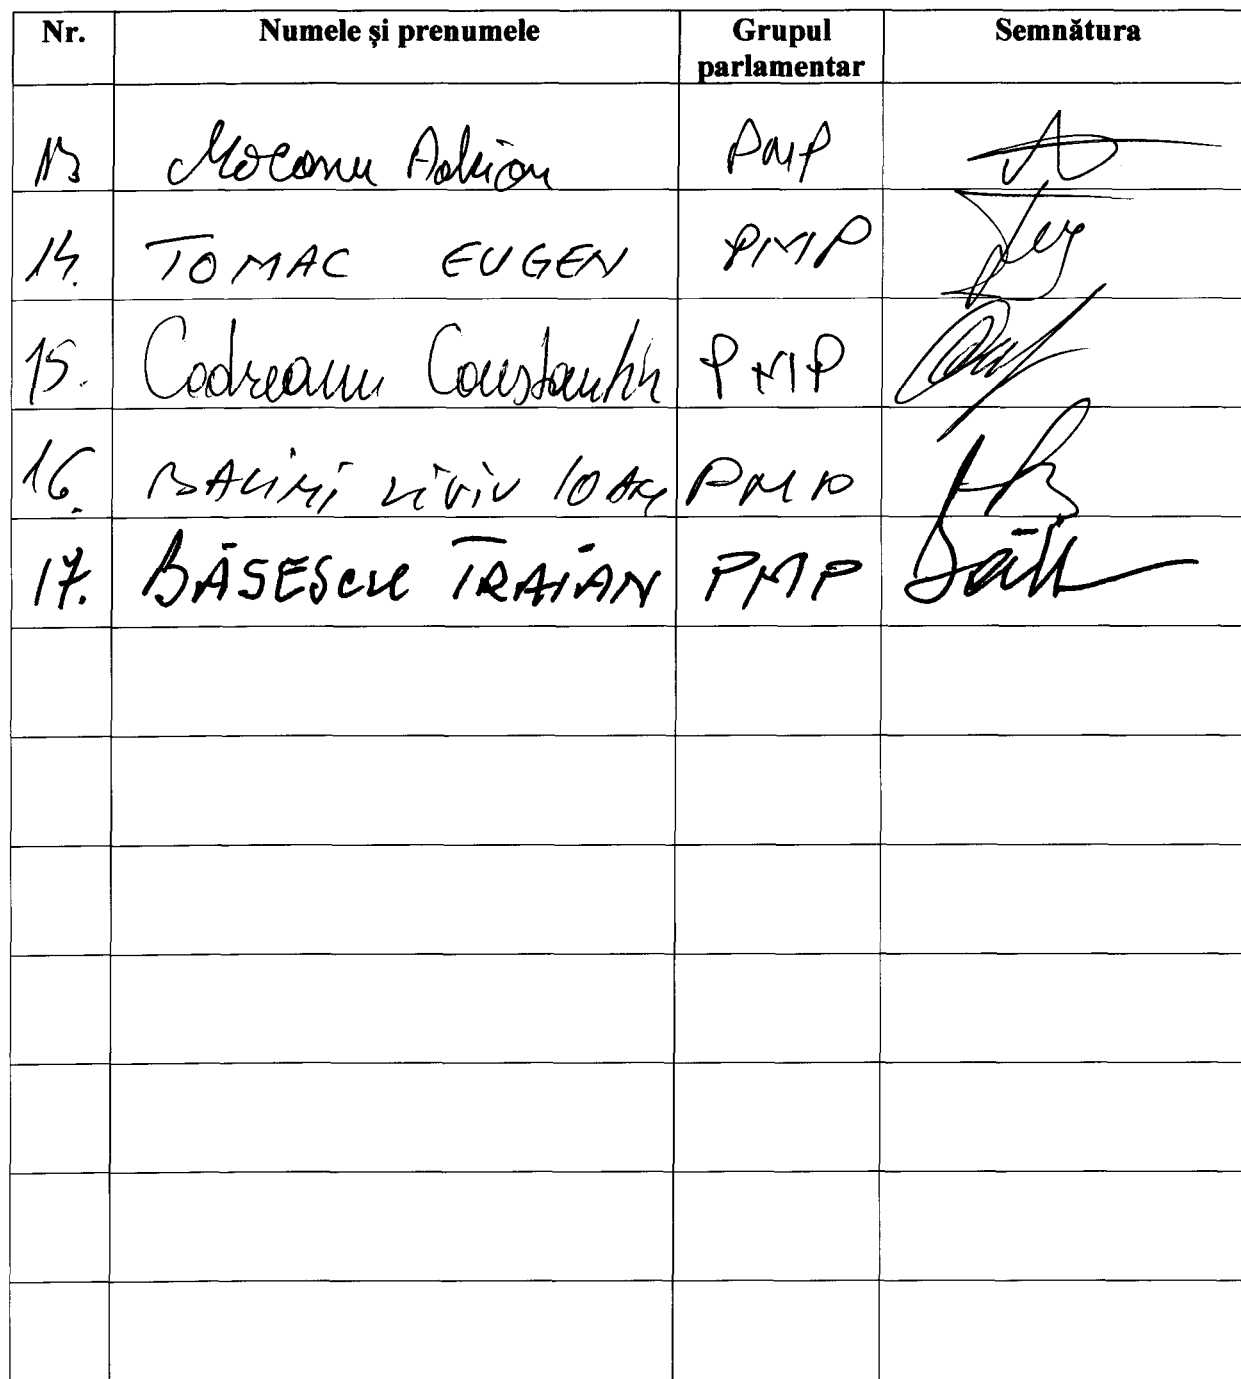 Nr. Numele și prenumele Grupul parlamentar Semnătura
13 Mocanu Adrian PMP
14. TOMAC EUGEN PMP
15. Codreanu Constantin PMP
16. BALINI LIVIU IOAN PMP
17. BĂSESCU TRAIAN PMP